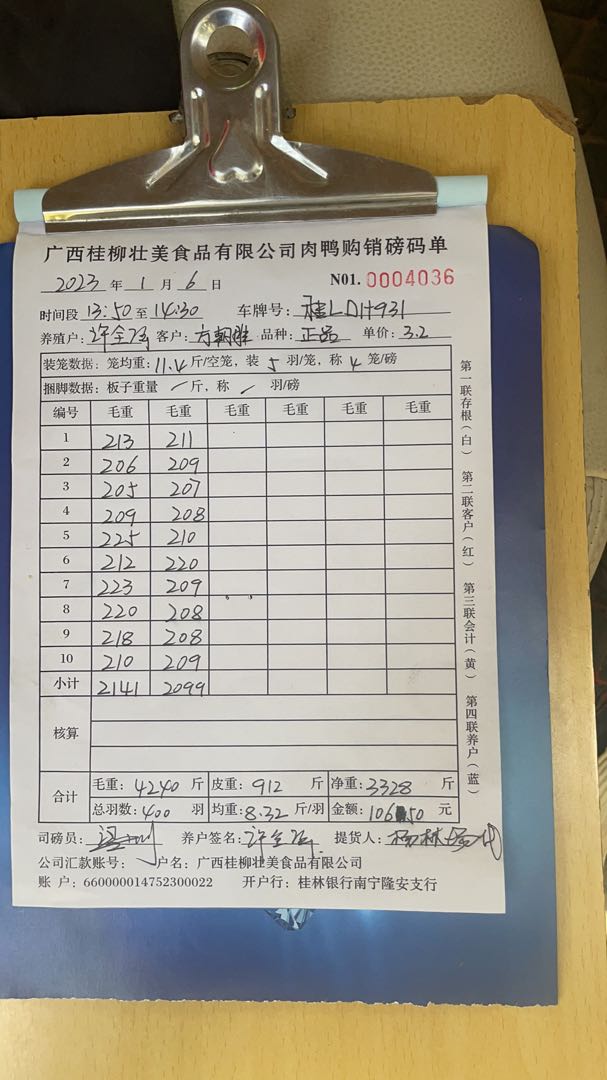 广西桂柳壮美食品有限公司肉鸭购销磅码单
2023 年 1 月 6 日 N01. 0004036
时间段 13:50 至 14:30 车牌号: 桂LDH931
养殖户: 许全强 客户: 方朝胜 品种: 正品 单价: 3.2
装笼数据: 笼均重: 11.4 斤/空笼, 装 5 羽/笼, 称 4 笼/磅
捆脚数据: 板子重量 / 斤, 称 / 羽/磅
编号 毛重 毛重 毛重 毛重 毛重 毛重
1 213 211
2 206 209
3 205 207
4 209 208
5 225 210
6 212 220
7 223 209
8 220 208
9 218 208
10 210 209
小计 2141 2099
核算
合计 毛重: 4240 斤 皮重: 912 斤 净重: 3328 斤
总羽数: 400 羽 均重: 8.32 斤/羽 金额: 10650 元
司磅员: 养户签名: 许全强 提货人:
公司汇款账号: 户名: 广西桂柳壮美食品有限公司
账 户: 660000014752300022 开户行: 桂林银行南宁隆安支行
第一联存根(白) 第二联客户(红) 第三联会计(黄) 第四联养户(蓝)